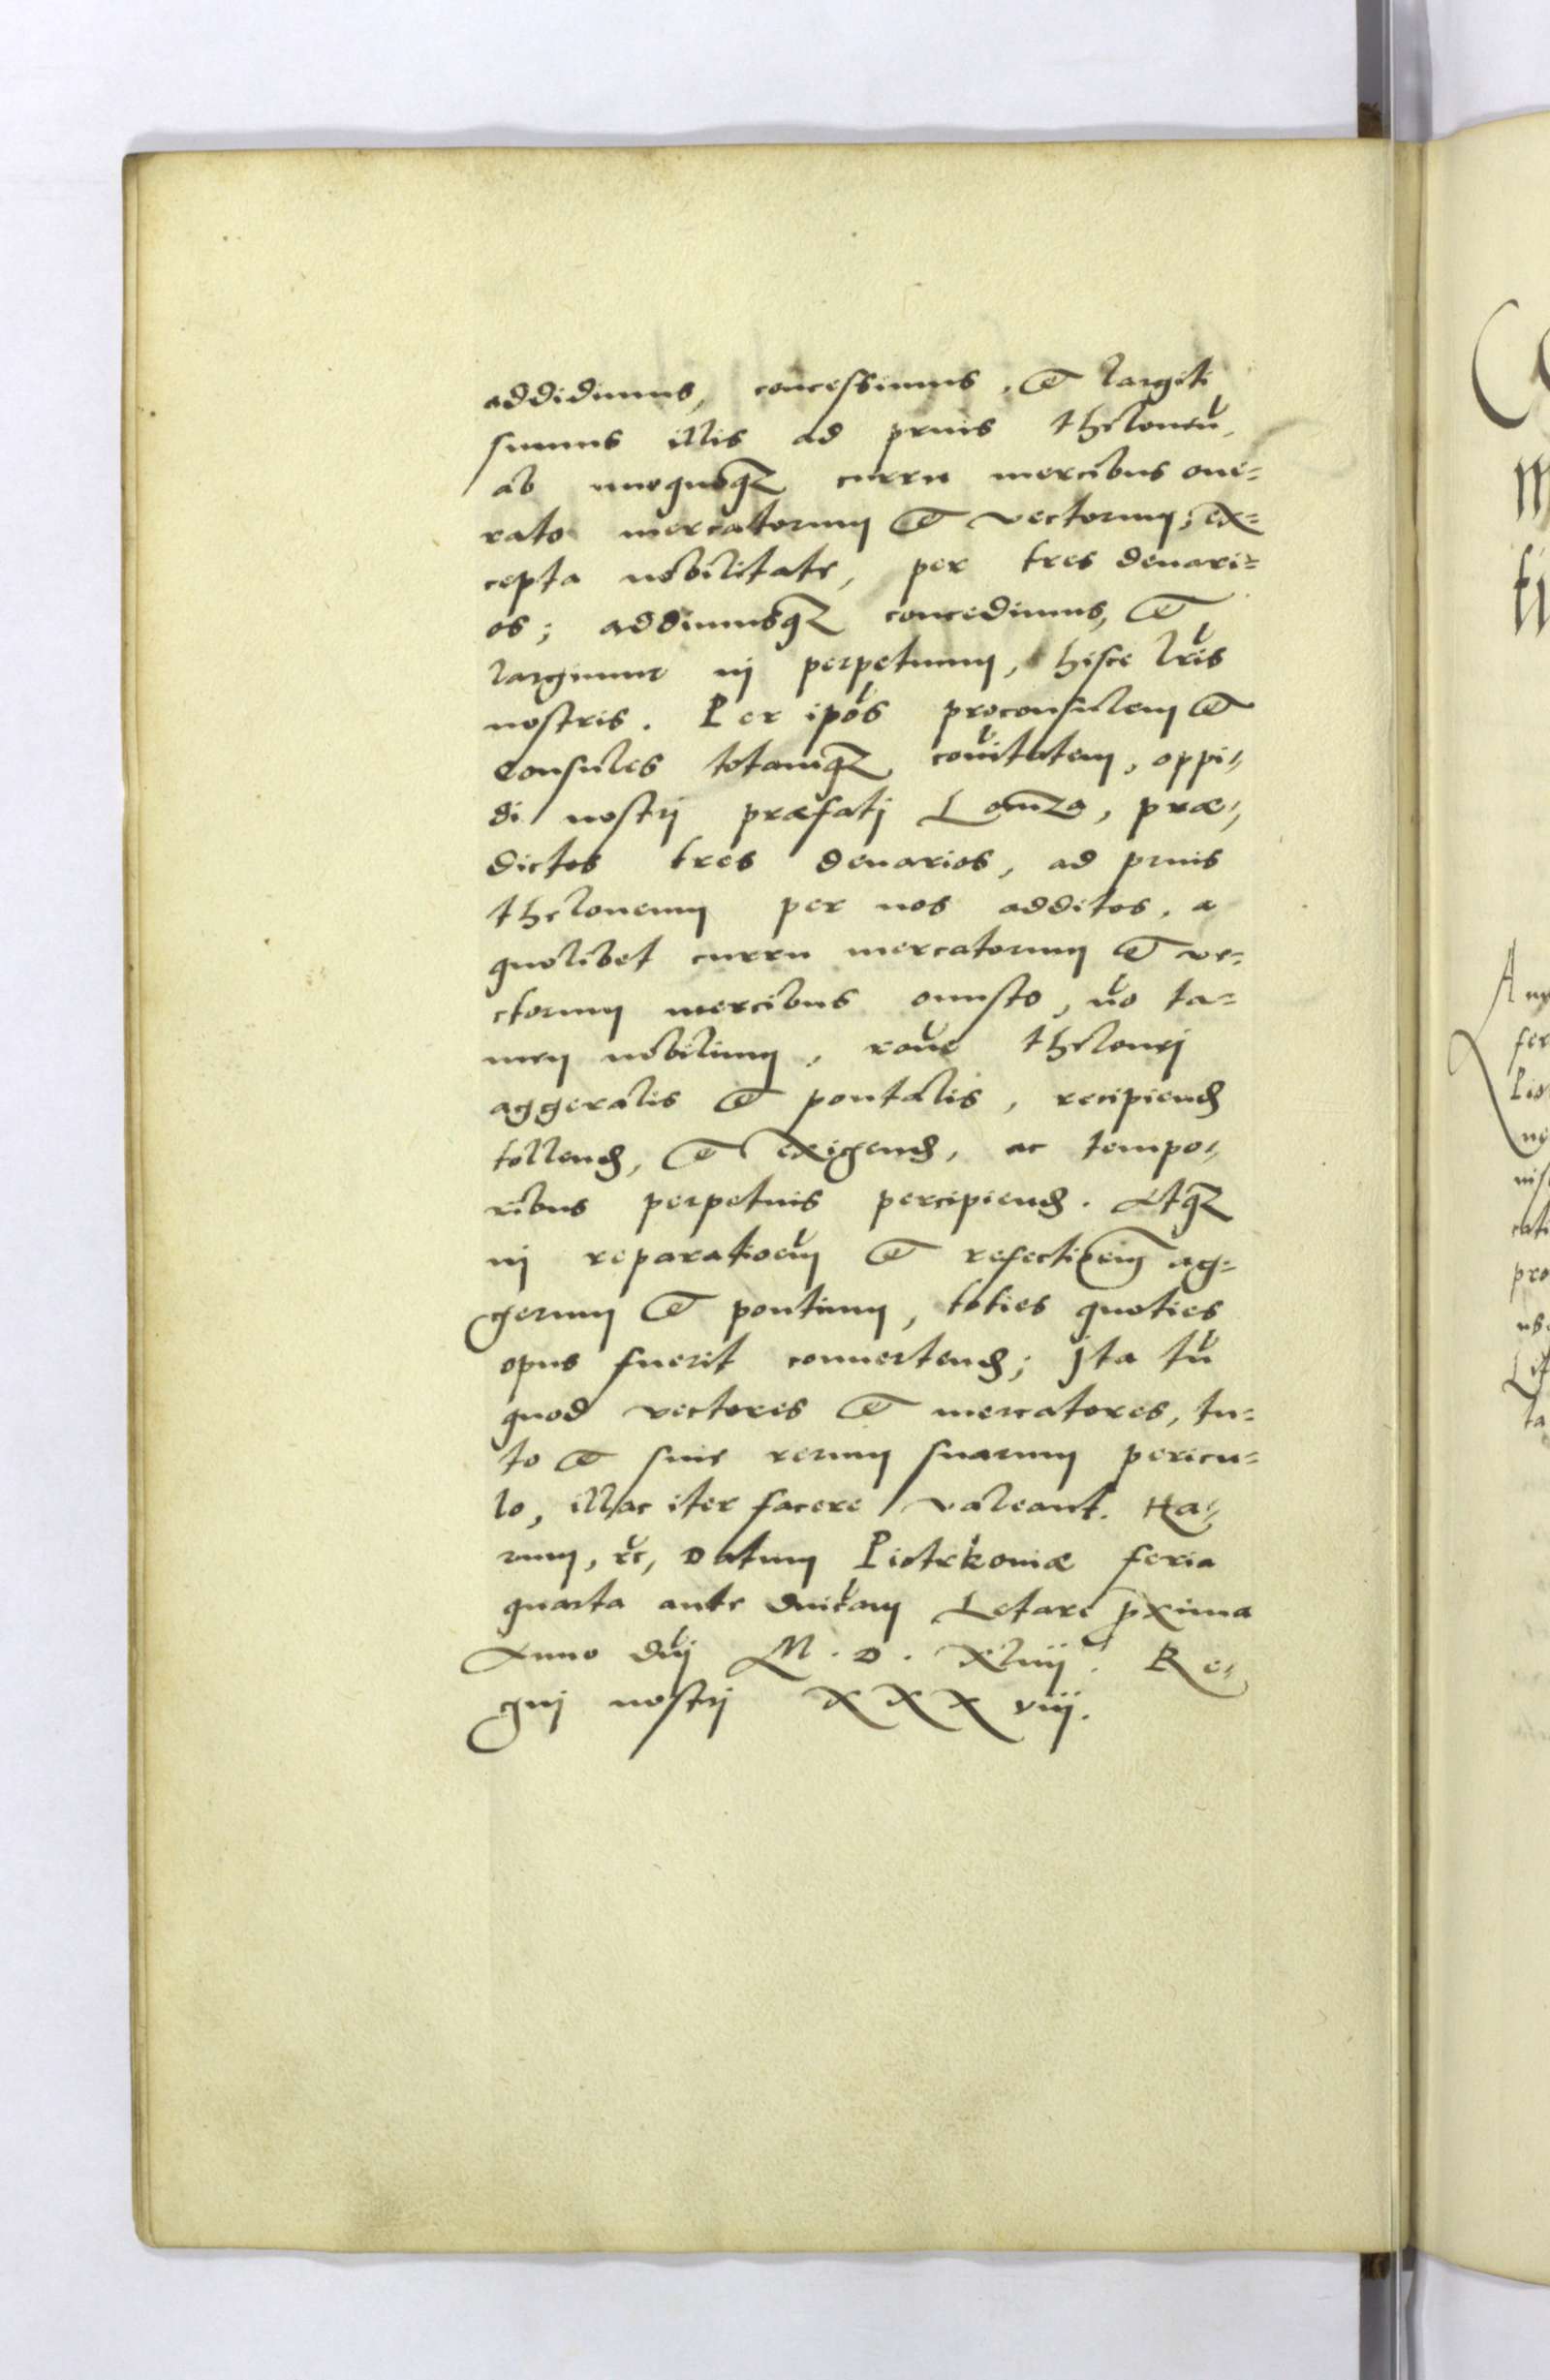 addidimus, concessimus, et largiti
sumus illis ad prius theloneu͂,
ab unoquoqꝫ curru mercibus one=
rato mercatorum et vectorum, ex=
cepta nobilitate, per tres denari=
os; addimusqꝫ concedimus, et
largimur in perpetuum, hisce lr͂is
nostris. Per ip͂os proconsulem et
Consules totamqꝫ co͂itatem, oppi=
di nostri præfati Lomza, præ=
dictos tres denarios, ad prius
theloneum per nos additos, a
quolibet curru mercatorum et ve=
ctorum mercibus onusto, no͂ ta=
men nobilium, ro͂ne thelonej
aggeralis et pontalis, recipiend
tollend, et exigend, ac tempo=
ribus perpetuis percipiend. Atqꝫ
in reparatioe͂m et refectioe͂m ag=
gerum et pontium, toties quoties
opus fuerit convertend; Ita tn͂
quod vectores et mercatores, tu=
to et sine rerum suarum pericu=
lo, illac iter facere valeant. Ha=
rum, etc, Datum Piotrkoviæ feria
quarta ante dn͂icam Letare pxima
Anno dn͂i M. D. Xliiij. Re=
gni nostri XXX viij.
A
fer
Pio
pro
Li
ta